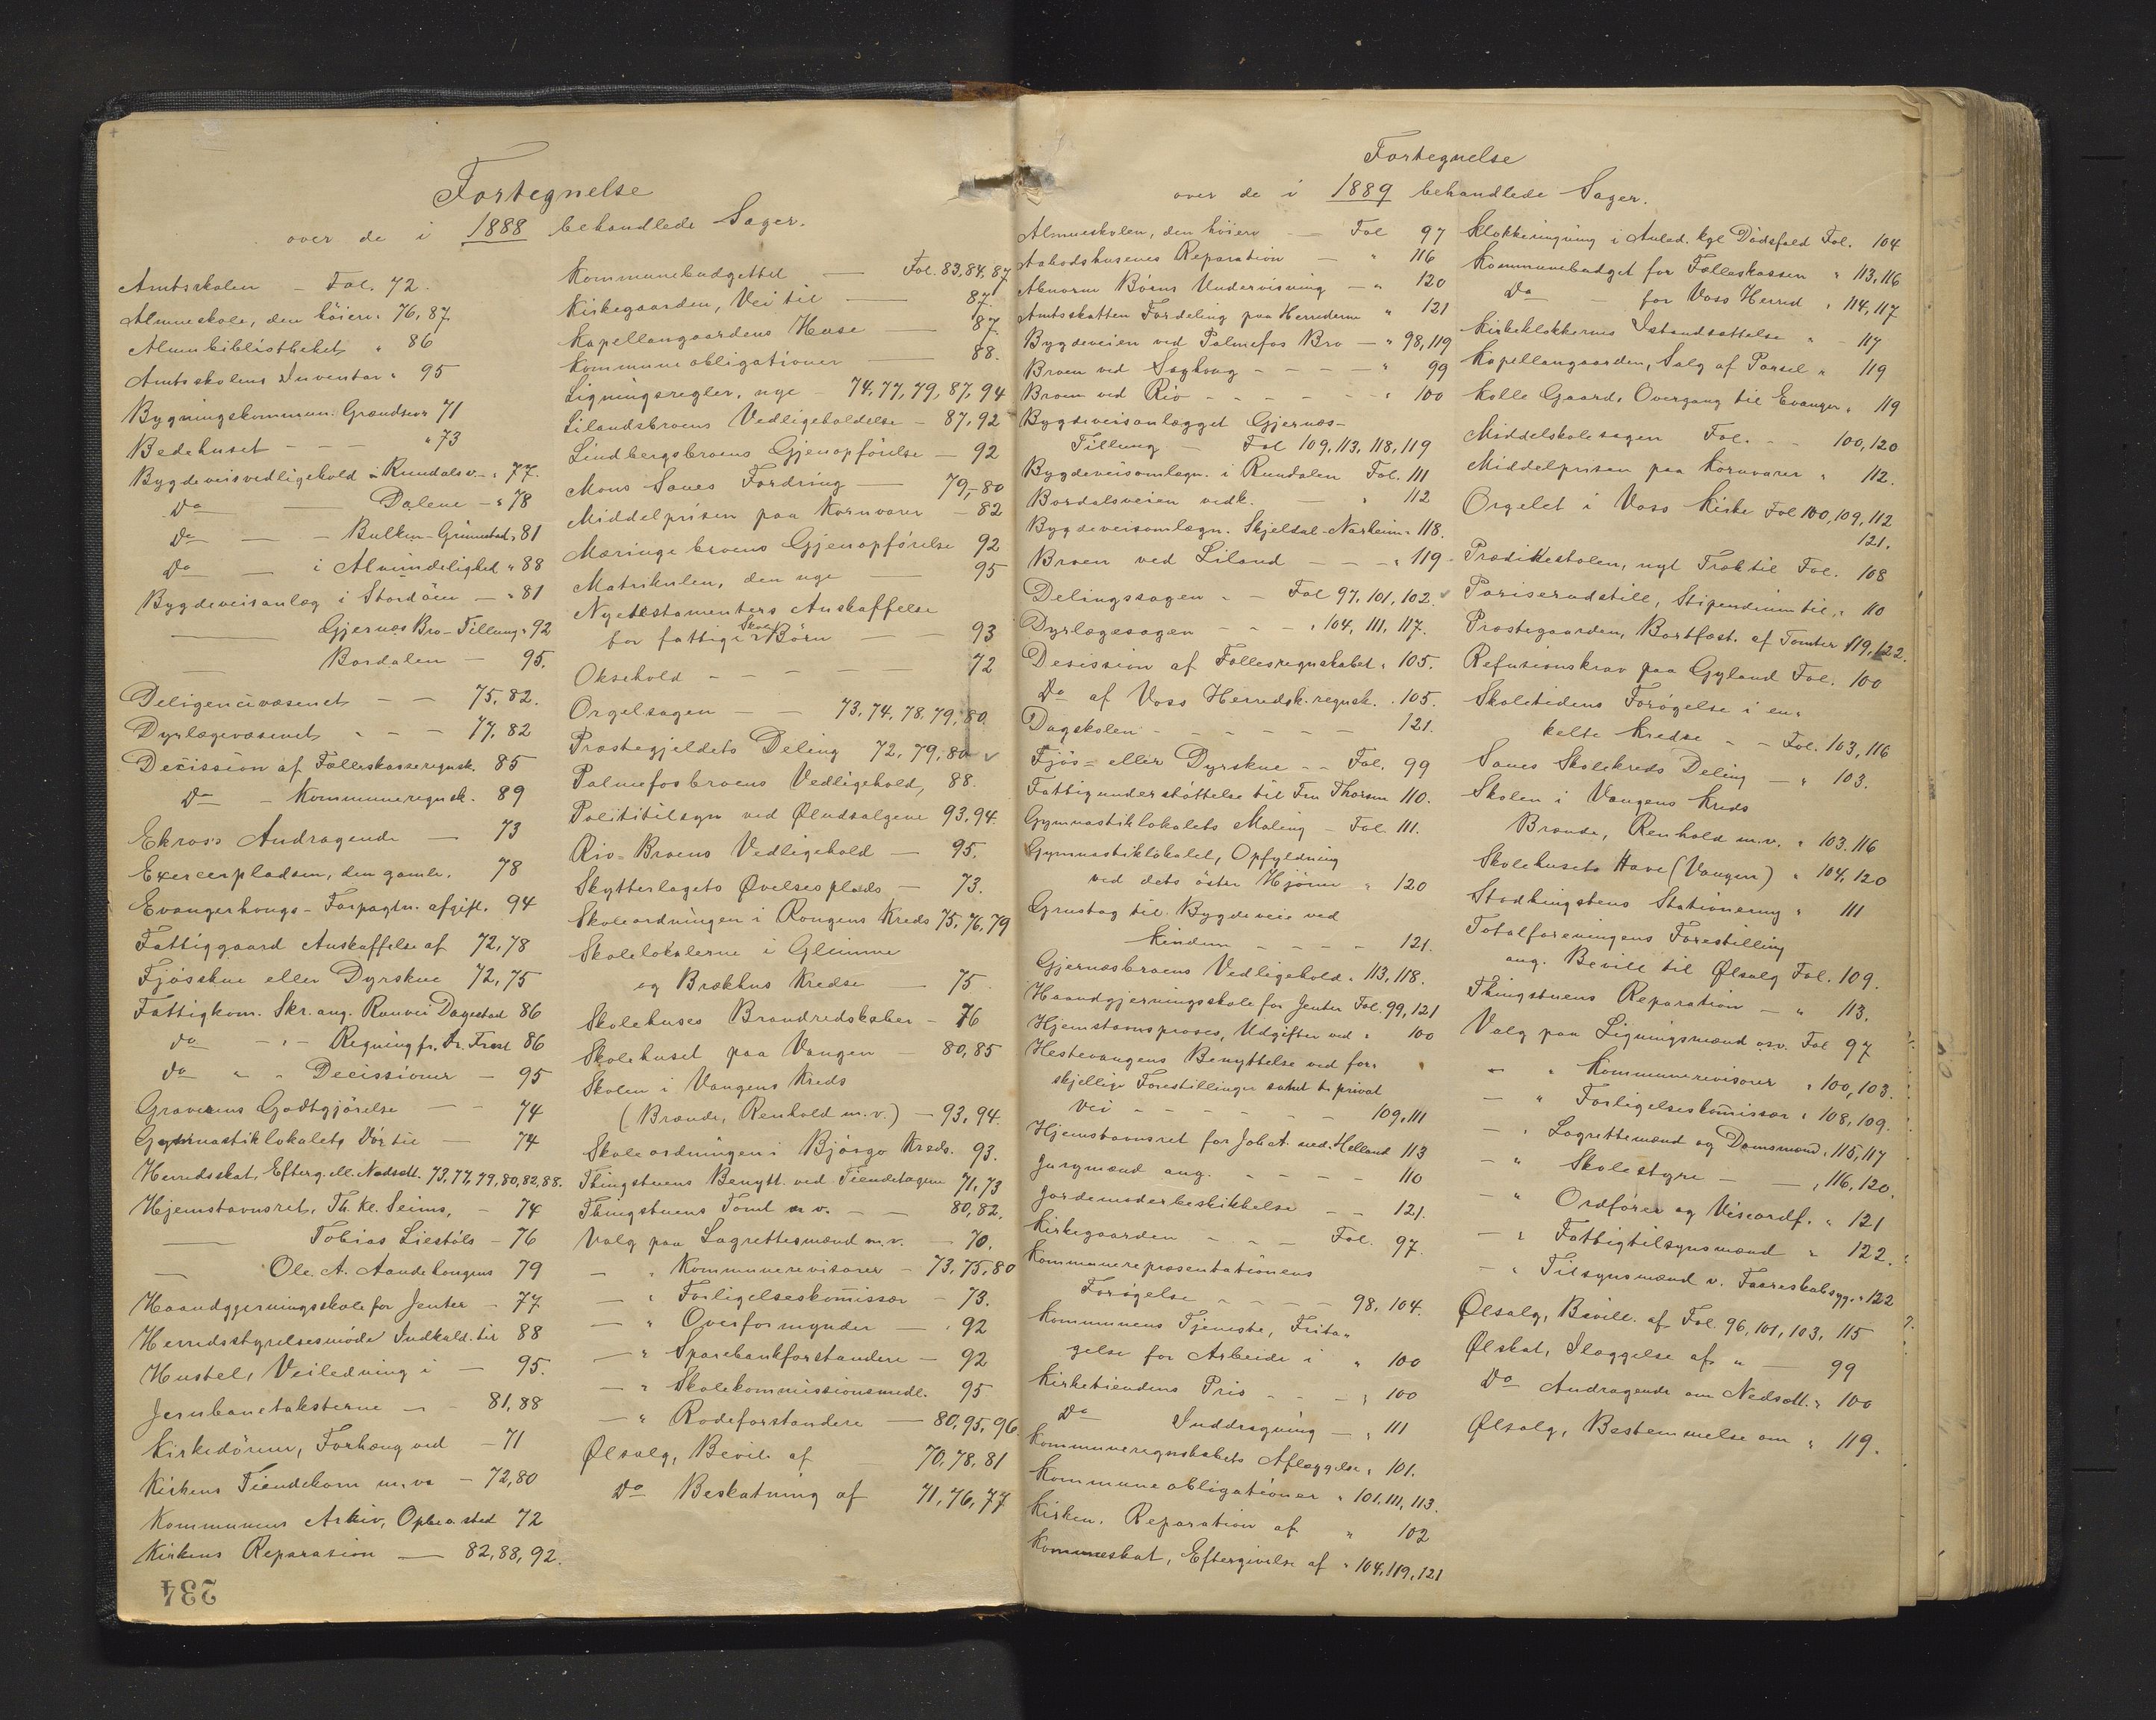 Fortegnelse
over de i 1888 behandlede Sager.
Amtsskolen – Fol. 72.
Almueskole, den höiere „ 76, 87
Almuebibliotheket „ 86
Amtsskolens Inventar „ 95
Bygningskommun. Grændser „ 71
Bedehuset – – – „ 73
Bygdeveisvedligehold i Rundalsv. – „ 77.
Do — Dalene – „ 78
Do — – Bulken-Grimestad „ 81
Do — i Almindelighed „ 88
Bygdeveisanlæg i Stordöen — „ 81
— Gjernæs Bro – Tillung „ 92
— Bordalen – 95.
Deligencevæsenet – – 75, 82.
Dyrlægevæsenet – – – 77, 82
Decission af Fælleskasseregnsk. 85
Do – Kommuneregnsk. 89
Ekrass Andragende — 73
Exercerpladsen, den gamle. 78
Evangerhougs - Forpagtn. afgift. 94
Fattiggaard Anskaffelse af 72, 78
Fjösskue eller Dyrskue 72, 75
Fattigkom. Skr. ang. Ranvei Dagestad 86
do – „ – Regning fr. Dr. Frost 86
do „ „ Decissioner – 95
Graverens Godtgjörelse — – 74
Gymnastiklokalets Dör til — 74
Herredsskat, Efterg. ell. Nedsætt. 73, 77, 79, 80, 82, 88.
Hjemstavnsret, Th. Kl. Seims, – 74
— Tobias Liestöls – 76
— Ole. A. Aandehougens 79
Haandgjerningsskole for Jenter – 77
Herredsstyrelsesmöde Indkald. til 88
Hustel, Veiledning i – 95.
Jernbanetaksterne — – 81, 88
Kirkedören, Forhæng ved – 71
Kirkens Tiendekorn m.v. – 72, 80
Kommunens Arkiv, Opbev. sted 72
Kirkens Reparasion — 82, 88, 92.
234
Kommunebudgettet — Fol. 83, 84, 87
Kirkegaarden, Vei til — 87.
Kapellangaardens Huse — 87
Kommuneobligationer — 88.
Ligningsregler, nye – 74, 77, 79, 87, 94
Lilandsbroens Vedligeholdelse – 87, 92
Lindbergsbroens Gjenopförelse — 92
Mons Saues Fordring — 79, 80
Middelprisen paa Kornvarer – 82
Mæringebroens Gjenopförelse 92
Matrikulen, den nye — 95
Nyetestamenters Anskaffelse
for fattige Skole Börn — – 93
Oksehold – – – — 72
Orgelsagen — – 73, 74, 78, 79, 80.
Præstegjeldets Deling 72, 79, 80 ✓
Palmefosbroens Vedligehold, 88.
Polititilsyn ved Øludsalgene 93, 94.
Rio-Broens Vedligehold — 95.
Skytterlagets Øvelsesplads – 73.
Skoleordningen i Rongens Kreds 75, 76, 79
Skolelokalerne i Gleimme
og Brækhus Kredse — 75.
Skolehuses Brandredskaber – 76
Skolehuset paa Vangen – 80, 85
Skolen i Vangens Kreds
(Brænde, Renhold m.v.) – 93, 94.
Skoleordningen i Bjørgo Kreds. 93.
Thingstuens Benytt. ved Tiendetagen 71, 73
Thingstuens Tomt m.v. – — 80, 82.
Valg paa Lagrettesmænd m.v. – 70.
— „ Kommunerevisorer – 73, 75, 80
— „ Forligelseskommissær – 73.
— „ Overformynder — 92
— „ Sparebankforstandere – 92
— „ Skolekommissionsmedl. 95
— „ Rodeforstandere — 80, 95, 96.
Ølsalg, Bevil. af — 70, 78, 81
Do Beskatning af 71, 76, 77
Fortegnelse
over de i 1889 behandlede Sager.
Almueskolen, den höiere — Fol 97
Aabodshusenes Reparation — „ 116
Abnorme Börns Undervisning – „ 120
Amtsskatten Fordeling paa Herrederne „ 121
Bygdeveien ved Palmefos Bro – „ 98, 119
Broen ved Saghoug – – – – „ 99
Broen ved Rio – – – – – – „ 100
Bygdeveisanlægget Gjernæs-
Tillung – Fol 109, 113, 118, 119
Bygdeveisomlægn. i Rundalen Fol. 111
Bordalsveien vedk. — „ 112
Bygdeveisomlægn. Skjeldal-Narheim „ 118.
Broen ved Liland – – – „ 119
Delingssagen – – Fol 97, 101, 102. ✓
Dyrlægesagen – – – „ 104, 111, 117.
Decission af Fællesregnskabet „ 105.
Do af Voss Herredsk. regnsk. „ 105.
Dagskolen – – – – – – 121.
Fjös- eller Dyrskue – – Fol. 99
Fattigunderstöttelse til Fru Thorsen 110.
Gymnastiklokalets Maling – Fol. 111.
Gymnastiklokalet, Opfyldning
ved dets östre Hjörne „ 120
Grustag til Bygdeveie ved
Kindem – – – – 121.
Gjernæsbroens Vedligehold „ 113, 118.
Haandgjerningsskole for Jenter Fol. 99, 121
Hjemstavnsproses, Udgifter ved „ 100
Hestevangens Benyttelse ved for-
skjellige Forestillinger samt t. privat
Vei – – – – – – – 109, 111
Hjemstavnsret for Joh. A. ned. Helland 113
Jurymænd ang. – – – – 110
Jordemoderbeskikkelse – – 121.
Kirkegaarden – – – Fol. 97.
Kommunerepræsentationens
Forøgelse – – – – 98, 104.
Kommunens Tjeneste, Frita-
gelse for Arbeide i „ 100
Kirketiendens Pris – – – „ 100
Do Inddragning – „ 111
Kommuneregnskabets Aflæggelse „ 101.
Kommuneobligationer „ 101, 111, 113.
Kirken, Reparation af „ 102
Kommuneskat, Eftergivelse af „ 104, 119, 121
Klokkeringning i Anled. kgl Dödsfald Fol. 104
Kommunebudget for Fælleskassen „ 113, 116
Do for Voss Herred „ 114, 117
Kirkeklokkernes Istandsættelse „ – 117
Kapellangaarden, Salg af Parsel „ 119
Kolle Gaards Overgang til Evanger „ 119
Middelskolesagen Fol. – – 100, 120
Middelprisen paa Kornvarer „ 112.
Orgelet i Voss Kirke Fol 100, 109, 112
121.
Prædikestolen, nyt Træk til Fol. 108
Pariserudstill, Stipendium til „ 110
Præstegaarden, Bortfæst. af Tomter 119, 122.
Refusionskrav paa Gyland Fol. 100
Skoletidens Forøgelse i en-
kelte Kredse – – Fol. 103, 116
Saues Skolekreds Deling — „ 103.
Skolen i Vangens Kreds
Brænde, Renhold m.v. „ 103, 116
Skolehusets Have (Vangen) „ 104, 120
Stodhingstens Stationering „ 111
Totalforeningens Forestilling
ang. Bevill til Ølsalg Fol. 109.
Thingstuens Reparation – „ 113.
Valg paa Ligningsmænd osv. Fol 97
– „ Kommunerevisorer „ 100, 103.
— „ Forligelseskommissær „ 108, 109.
– „ Lagrettemænd og Domsmænd „ 115, 117
– „ Skolestyre – — „ 116, 120.
– „ Ordförer og Viseordf. „ 121
– „ Fattigtilsynsmænd „ 122.
– „ Tilsynsmænd v. Faareskabsyg. „ 122
Ølsalg, Bevill. af Fol. 96, 101, 103, 115
Ølskat, Ilæggelse af „ — 99
Do Andragende om Nedsætt. „ 100
Ølsalg, Bestemmelse om „ 119.